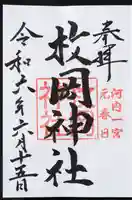 奉拝
河内一宮
元春日
枚岡神社
令和六年六月十五日